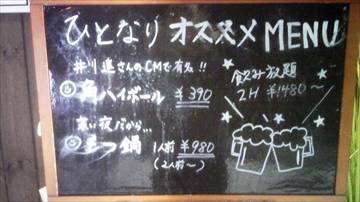 ひとなり オススメ MENU
井川遥さんのCMで有名!!
角ハイボール ¥390
寒い夜だから...
もつ鍋 1人前 ¥980
(2人前〜)
飲み放題
2H ¥1480〜